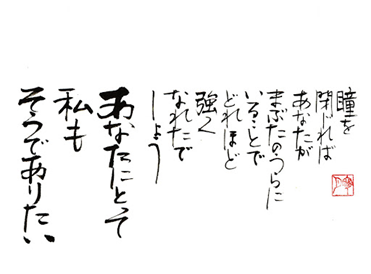 瞳を
閉じれば
あなたが
まぶたのうらに
いることで
どれほど
強く
なれたで
しょう
あなたにとって
私も
そうでありたい